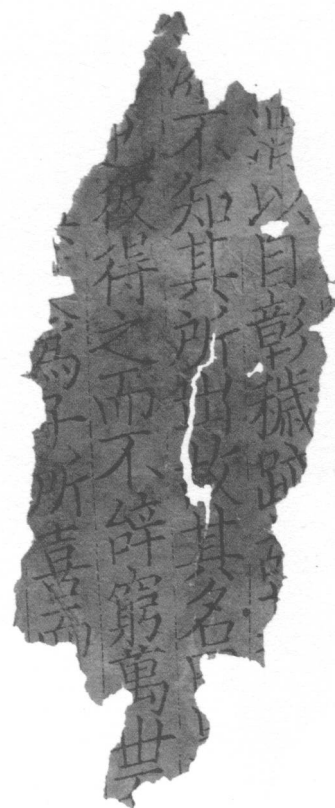 以自彰穢跡
不知其所故其名
彼得之而不辭窮萬世
為子所喜